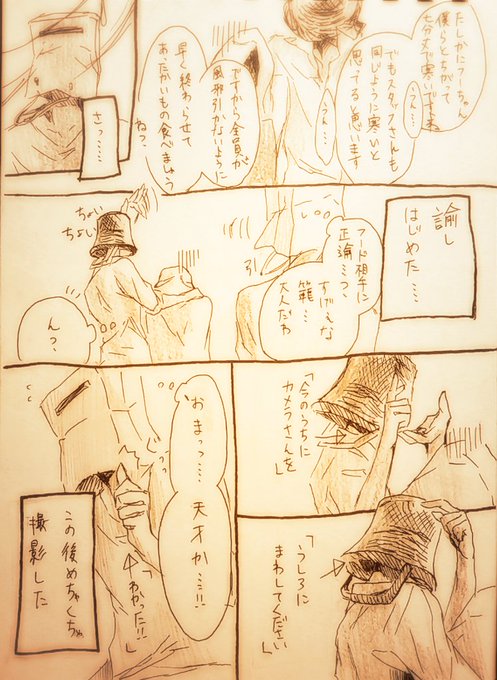 たしかにフーちゃん
僕らとちがって
七分丈で寒いですよね
うん…
でもスタッフさんも
同じように寒いと
思ってると思います
うん…
ですから全員が
風邪引かないように
早く終わらせて
あたたかいもの食べましょう
ね？
さっ……
諭し
はじめた…
フード相手に
正論…っ、
すげぇな
籠…
大人だわ
引
ちょい
ちょい
ん？
「今のうちに
カメラさんを」
「うしろに
まわしてください」
おまっ……
天才か……!!
「わかった!!」
この後めちゃくちゃ
撮影した